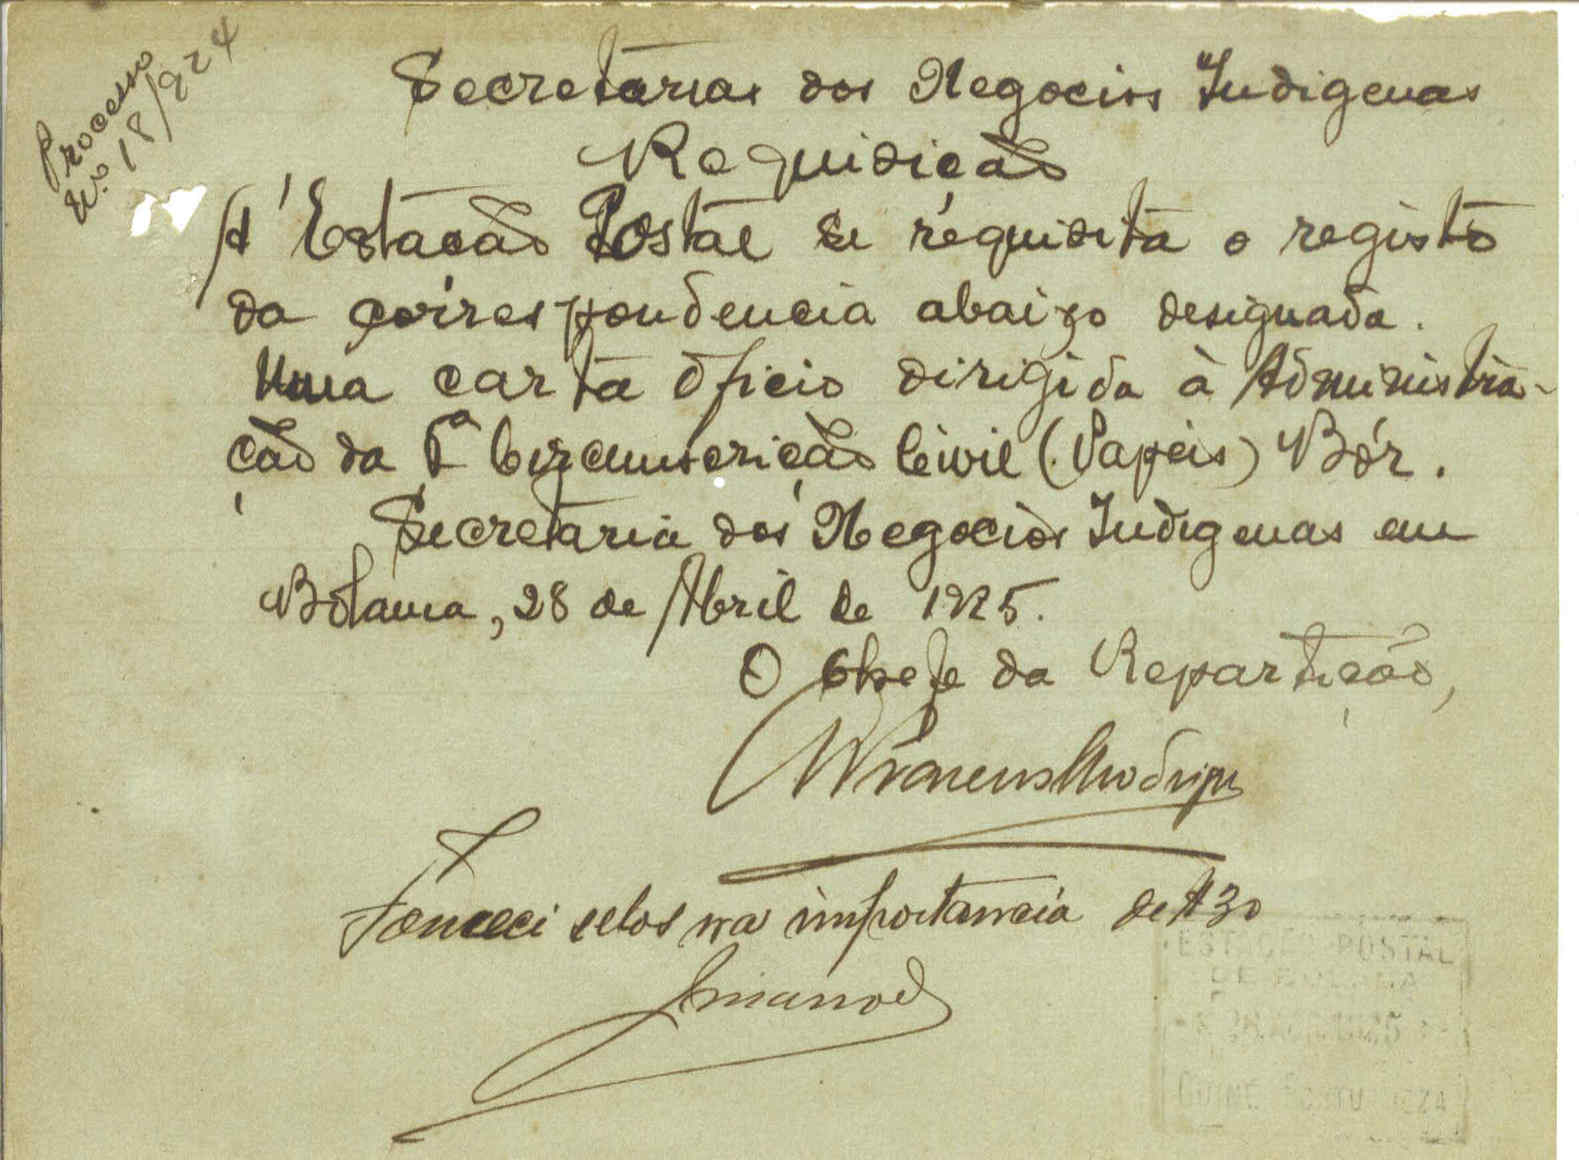 Processo
N.º 18/924
Secretarias dos Negocios Indigenas
Requisição
A' Estação Postal se requisita o registo
da correspondencia abaixo designada.
Uma carta oficio dirigida à Administra-
ção da 1ª Circunscrição Civil (Papeis) Bór.
Secretaria dos Negocios Indigenas em
Bolama, 28 de Abril de 1925.
O Chefe da Repartição,
Forneci selos na importancia de $30
ESTAÇÃO POSTAL
DE BOLAMA
1925
GUINÉ PORTUGUEZA